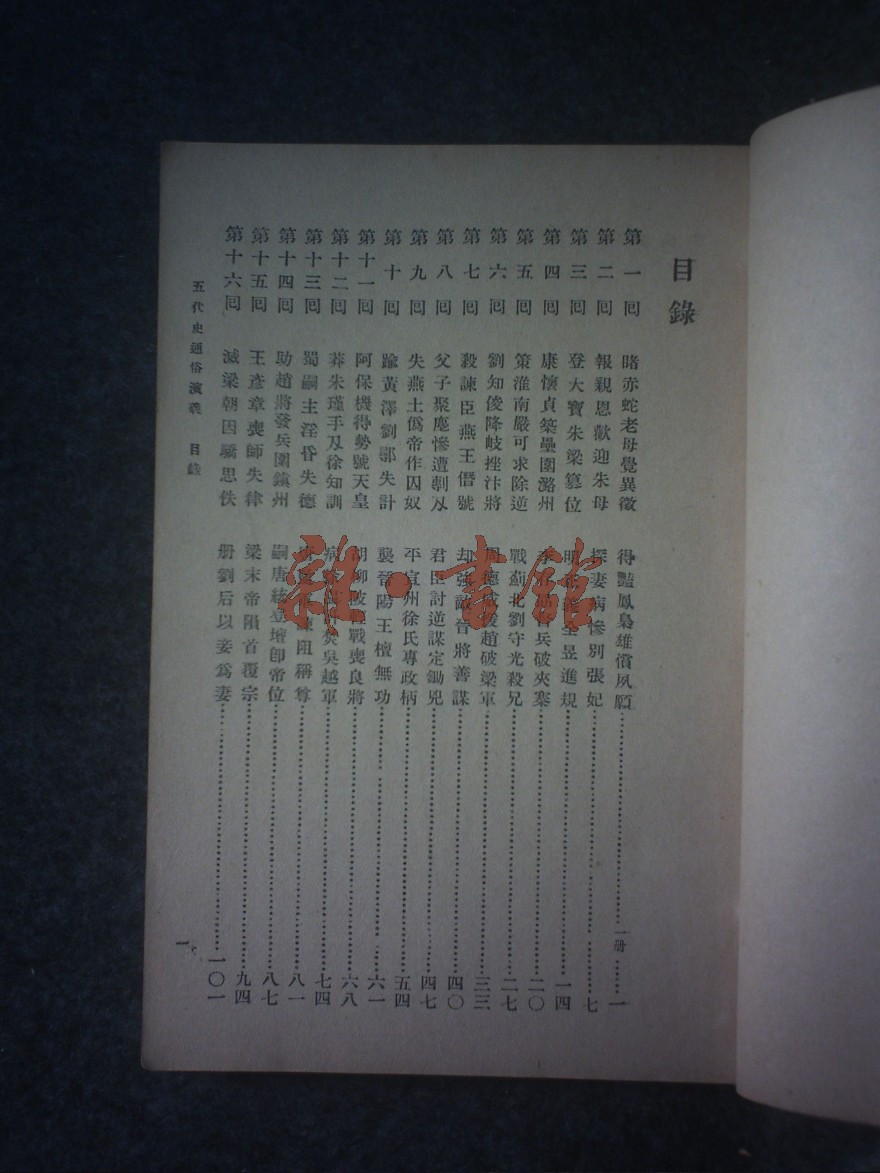 目錄
第一回 睹赤蛇老母覺異徵 得豔鳳梟雄償夙願 一册 一
第二回 報親恩歡迎朱母 探妻病慘別張妃 七
第三回 登大寶朱梁篡位 明 全昱進規 一四
第四回 康懷貞築壘圍潞州 李 兵破夾寨 二〇
第五回 策淮南嚴可求除逆 戰薊北劉守光殺兄 二七
第六回 劉知俊降岐挫汴將 周德威援趙破梁軍 三三
第七回 殺諫臣燕王僭號 却強敵晉將善謀 四〇
第八回 父子聚麀慘遭剚刃 君臣討逆謀定鋤兇 四七
第九回 失燕土僞帝作囚奴 平宣州徐氏專政柄 五四
第十回 踰黃澤劉鄩失計 襲晉陽王檀無功 六一
第十一回 阿保機得勢號天皇 胡柳陂 戰喪良將 六八
第十二回 莽朱瑾手刃徐知訓 病 焚吳越軍 七四
第十三回 蜀嗣主淫昏失德 諫阻稱尊 八一
第十四回 助趙將發兵圍鎮州 嗣唐統登壇卽帝位 八七
第十五回 王彥章喪師失律 梁末帝隕首覆宗 九四
第十六回 滅梁朝因驕思佚 册劉后以妾爲妻 一〇一
五代史通俗演義 目錄
一
雜·書館